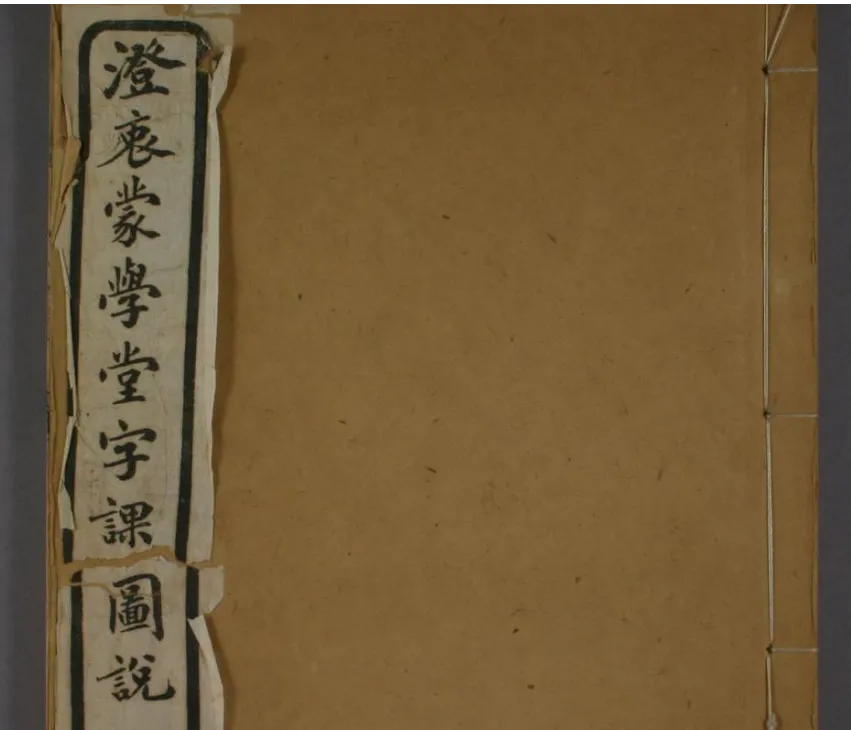 澄衷蒙學堂字課圖說